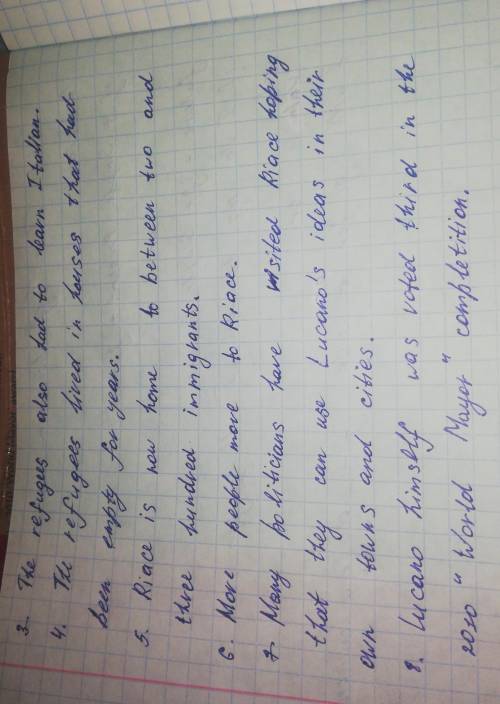 3. The refugees also had to learn Italian.
4. The refugees lived in houses that had
been empty for years.
5. Riace is now home to between two and
three hundred immigrants.
6. More people move to Riace.
7. Many politicians have visited Riace hoping
that they can use Lucano's ideas in their
own towns and cities.
8. Lucano himself was voted third in the
2010 "World Mayer" completition.